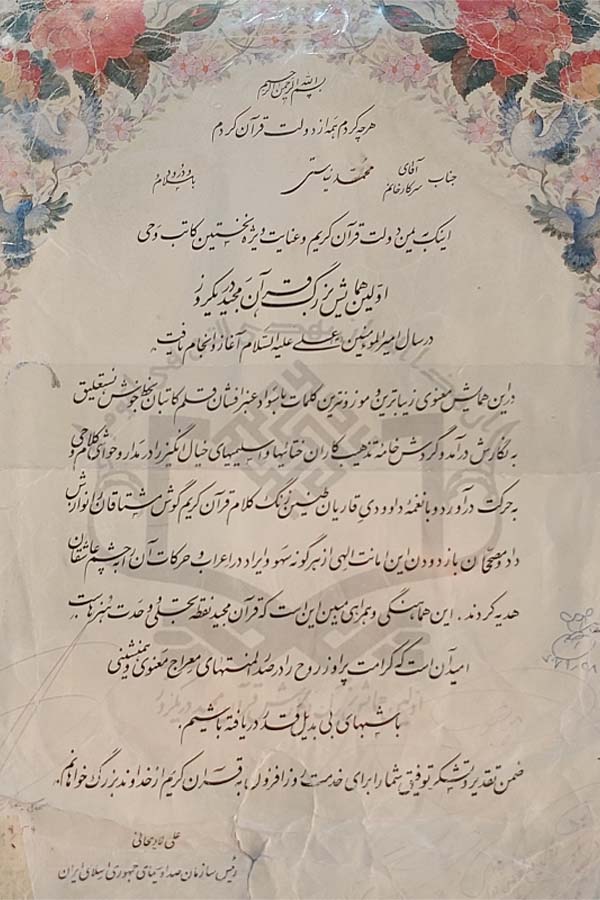 بسم الله الرحمن الرحیم
هرچه کردم همه از دولت قرآن کردم
جناب آقای / سرکار خانم محمد ریاستی با درود و سلام
اینک به یمن دولت قرآن کریم و عنایت ویژه نخستین کاتب وحی
اولین همایش بزرگ قرآن مجید در یکروز
در سال امیرالمومنین علی علیه السلام آغاز و انجام یافت.
در این همایش معنوی زیباترین و موزونترین کلمات با سواد عنبر افشان قلم کاتبان بخط خوش نستعلیق
به نگارش درآمد و گردش خامه تذهیب کاران ختائیها و اسلیمیهای خیال انگیز را در مدار و حواشی کلام حق
به حرکت درآورد و با نغمه داوودی قاریان طنین زنگ کلام قرآن کریم گوش مشتاقان را نوازش
داد و مصححان با زدودن این امانت الهی از هر گونه سهو و ایراد در اعراب و حرکات آن را به چشم عاشقان
هدیه کردند. این هماهنگی و همراهی مبین این است که قرآن مجید نقطه تجلی و وحدت هنرهاست.
امید آن است که کرامت پرواز روح را در صدر المنتهای معراج معنوی و همنشینی
با شبهای بی بدیل قدر دریافته باشیم.
ضمن تقدیر و تشکر توفیق شما را برای خدمت روزافزون به قرآن کریم از خداوند بزرگ خواهانم.
علی لاریجانی
رئیس سازمان صدا و سیمای جمهوری اسلامی ایران